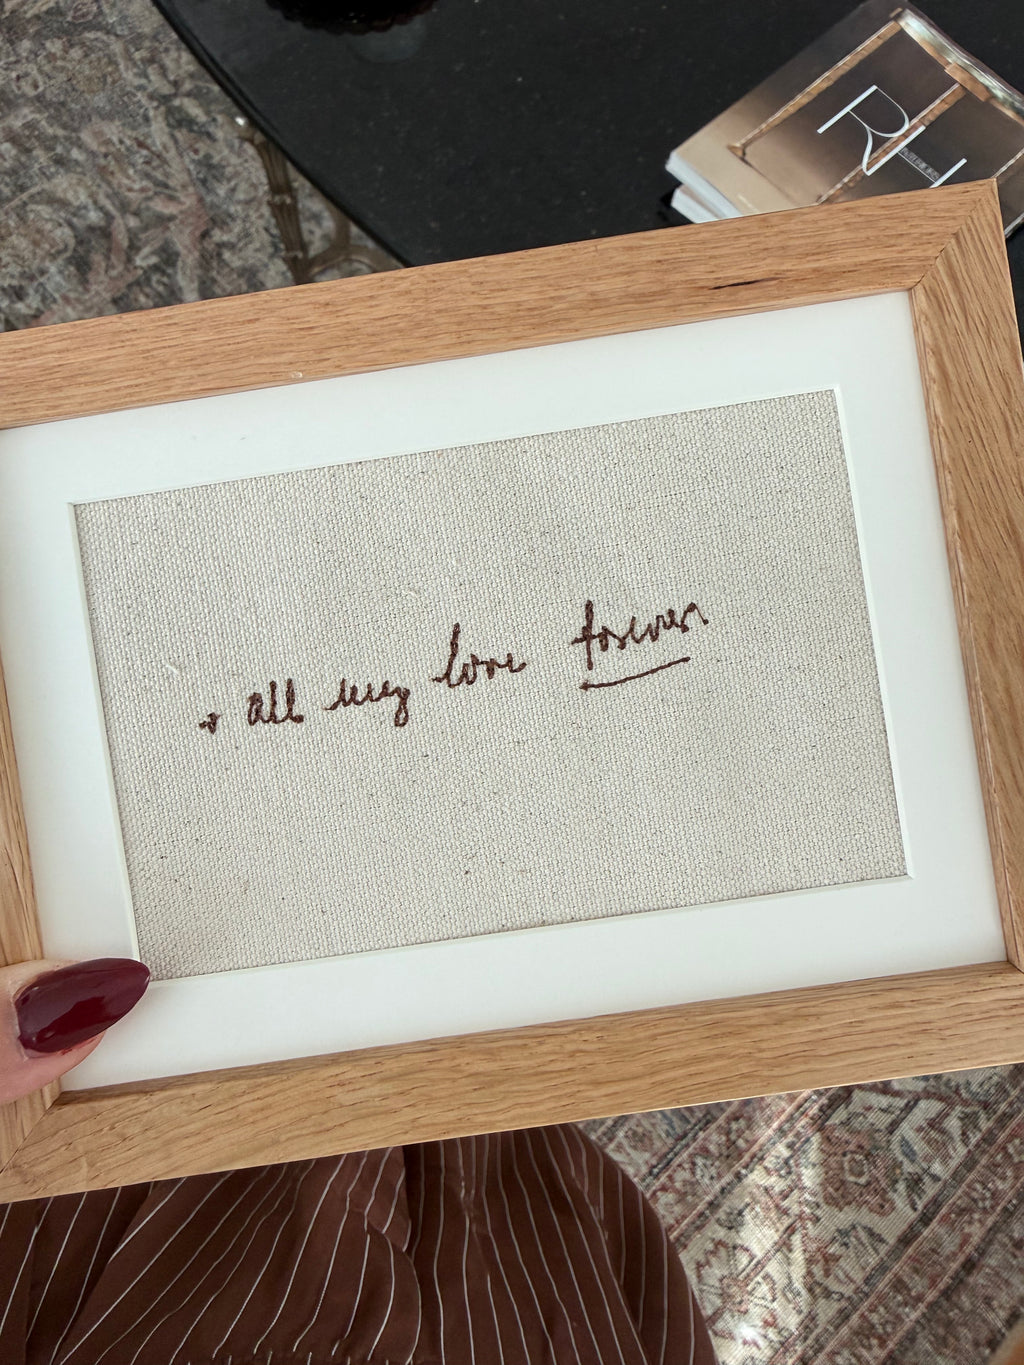 RH
+ all my love forever